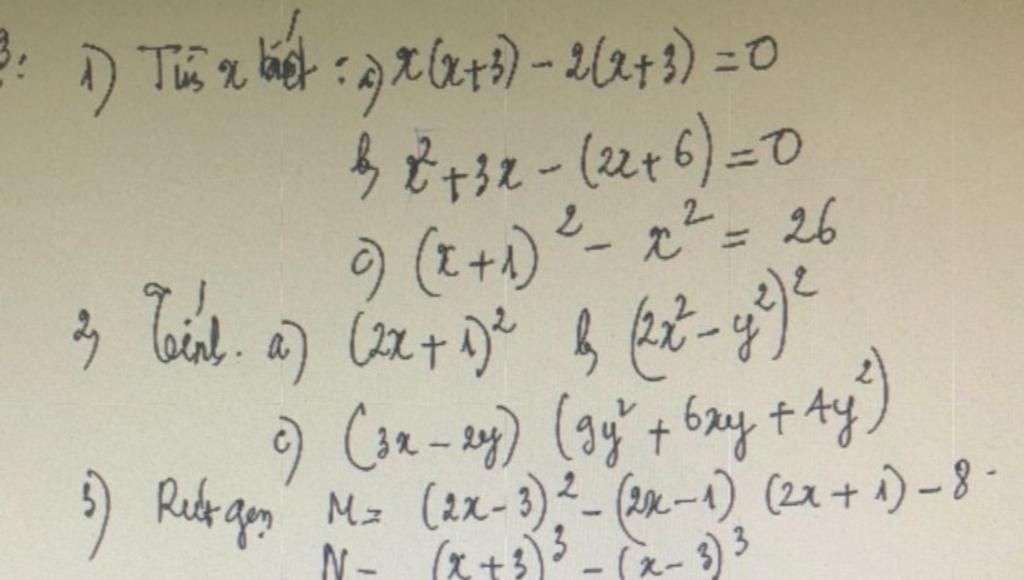 3: 1) Tìm x biết : a) x(x+3) - 2(x+3) = 0
b) x² + 3x - (2x+6) = 0
c) (x+1)² - x² = 26
2) Tính. a) (2x+1)² b) (2x² - y²)²
c) (3x - 2y) (9y² + 6xy + 4y²)
3) Rút gọn M = (2x-3)² - (2x-1) (2x+1) - 8
N = (x+3)³ - (x-3)³